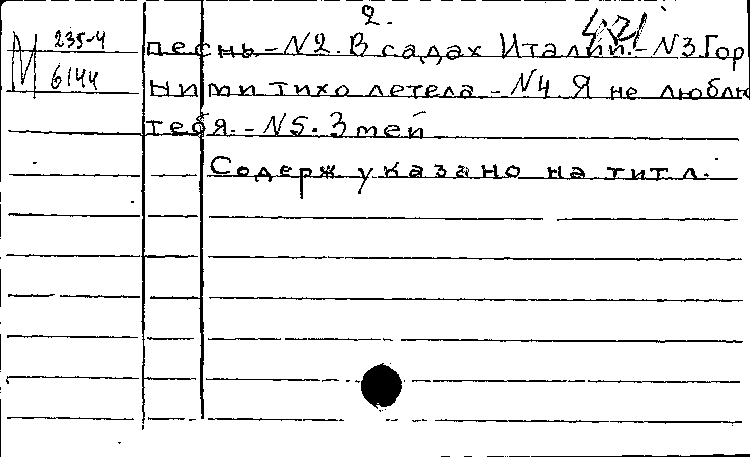 2.
М 235-4
6144
песнь.-N2. В садах Италии.-N3.Гор
ними тихо летела.-N4 Я не люблю
тебя.-N5. Змей
Содерж указано на титл.